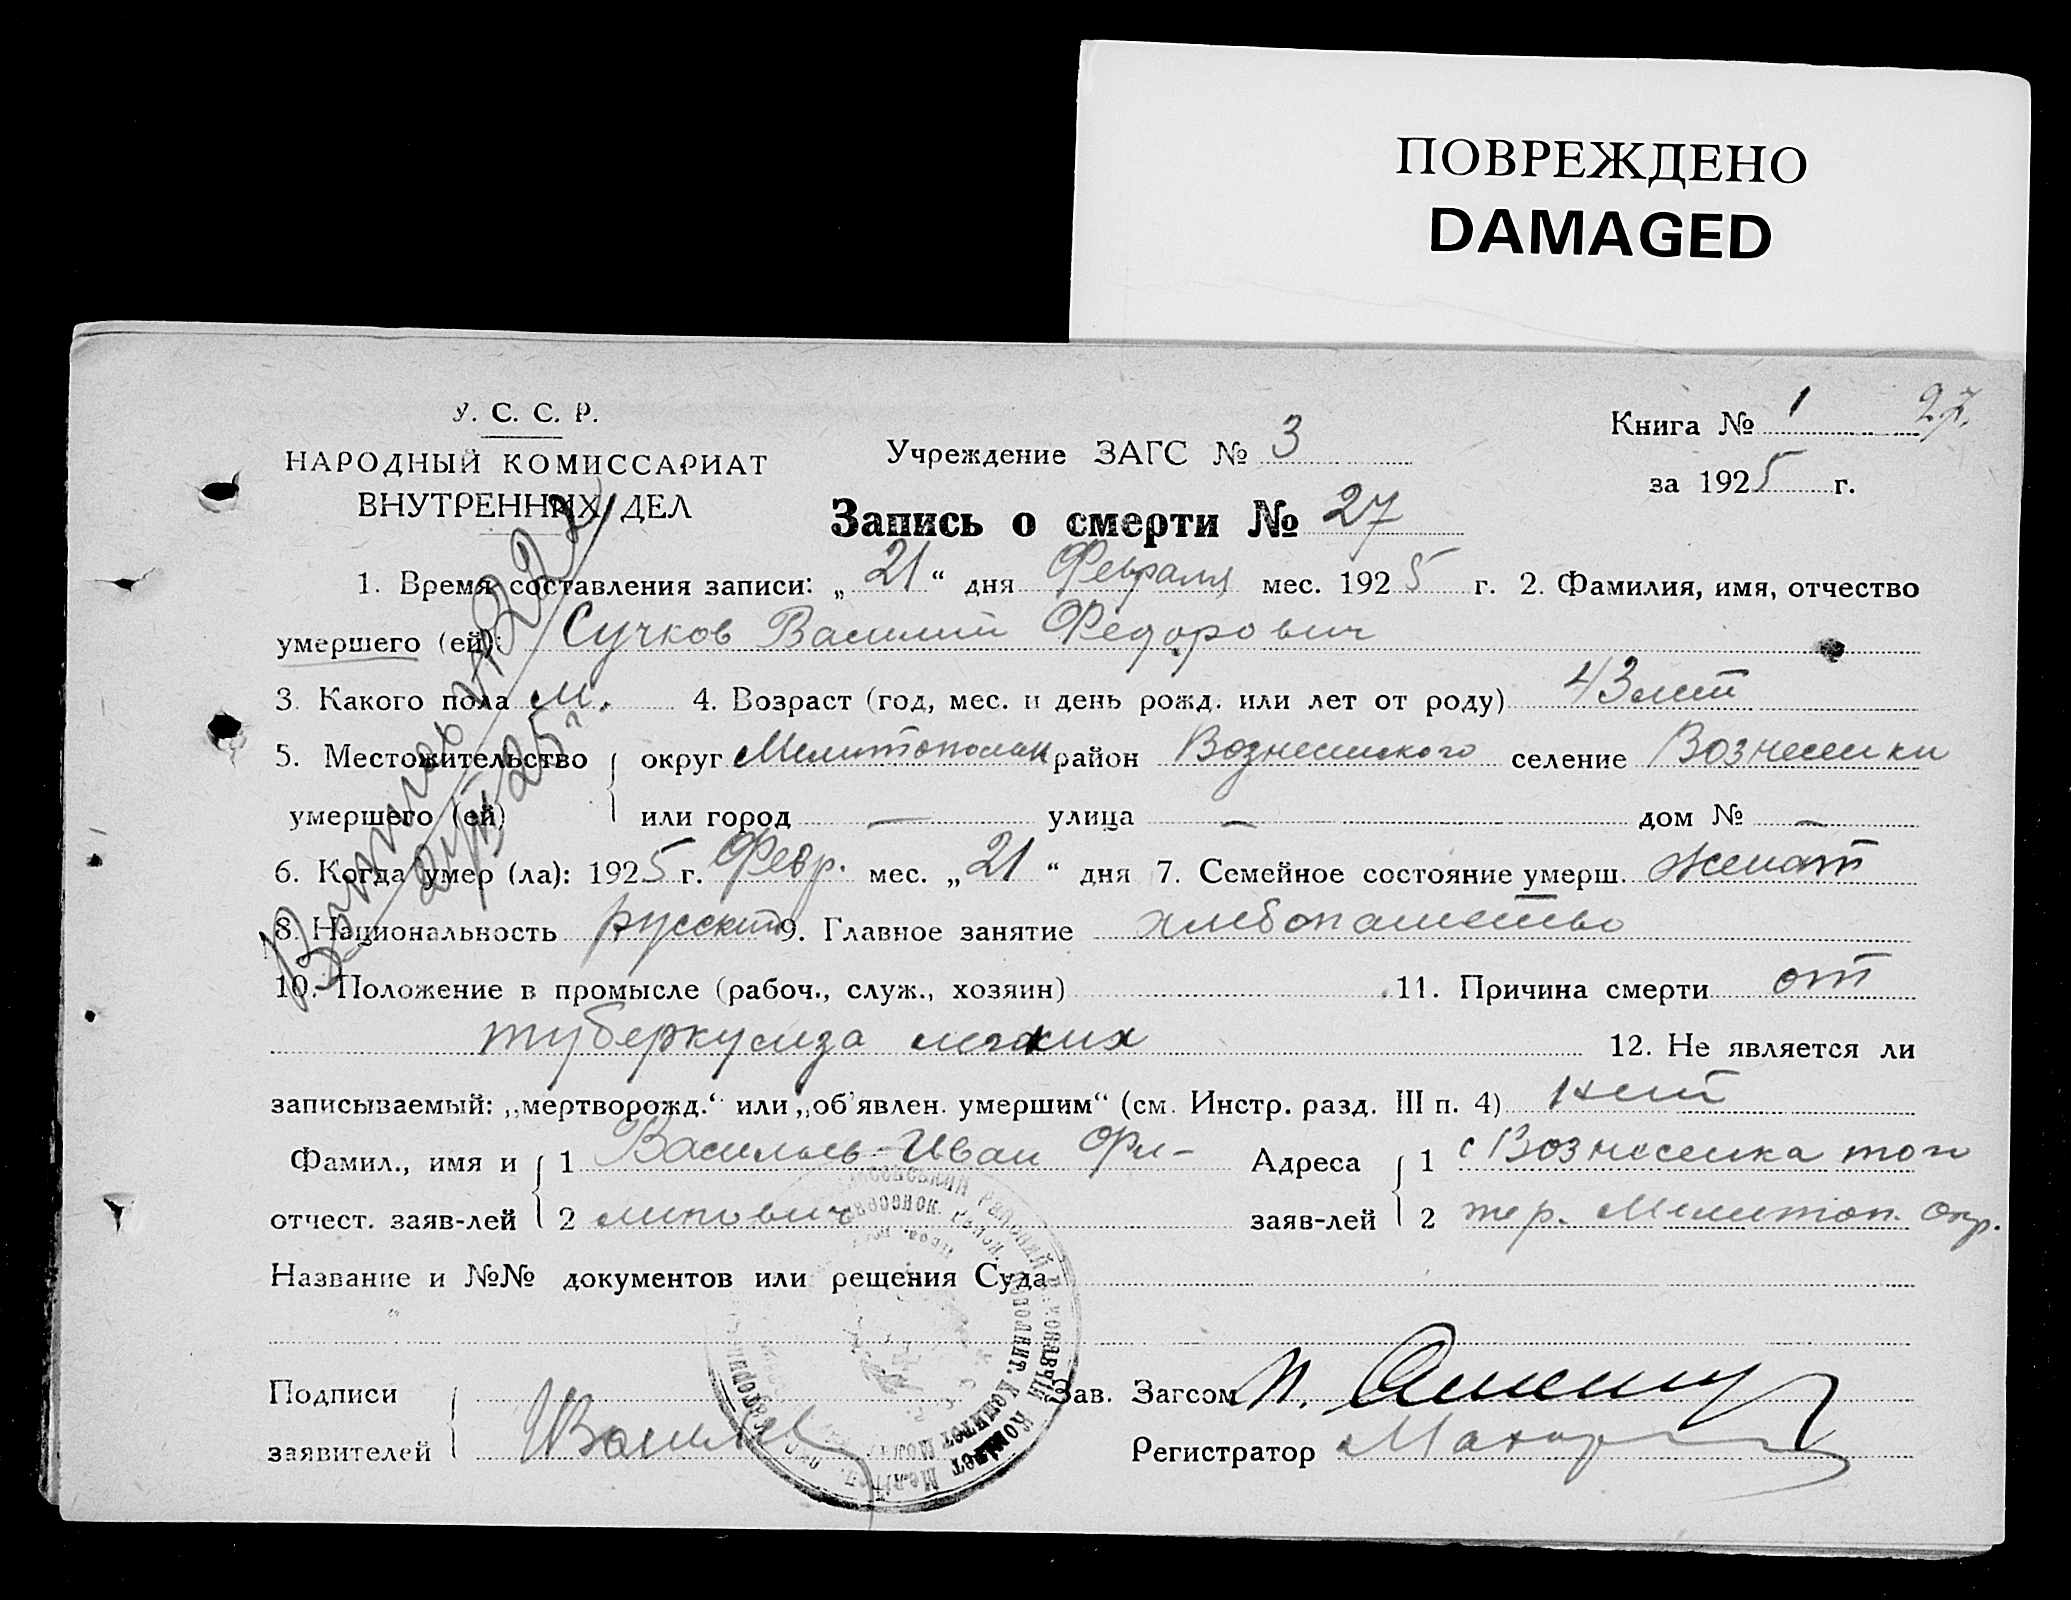 ПОВРЕЖДЕНО
DAMAGED
У. С. С. Р.
НАРОДНЫЙ КОМИССАРИАТ
ВНУТРЕННИХ ДЕЛ
Учреждение ЗАГС № 3
Книга № 1 27.
за 1925 г.
Запись о смерти № 27
1. Время составления записи: „21“ дня Февраля мес. 1925 г. 2. Фамилия, имя, отчество
умершего (ей): Сучков Василий Федорович
3. Какого пола м. 4. Возраст (год, мес. и день рожд. или лет от роду) 43 лет
5. Местожительство округ Мелитополь район Вознесенского селение Вознесенки
умершего (ей) или город — улица — дом № —
6. Когда умер (ла): 1925 г. Февр. мес. „21“ дня 7. Семейное состояние умерш. женат
8. Национальность русский 9. Главное занятие хлебопашество
10. Положение в промысле (рабоч., служ., хозяин) 11. Причина смерти от
туберкулиза легких 12. Не является ли
записываемый: „мертворожд.“ или „об'явлен. умершим“ (см. Инстр. разд. III п. 4) нет
Фамил., имя и 1 Василь Иван Фи- Адреса 1 с Вознесенка той
отчест. заяв-лей 2 липович заяв-лей 2 тер. Мелитоп. окр.
Название и №№ документов или рещения Суда
Подписи Зав. Загсом
заявителей Регистратор